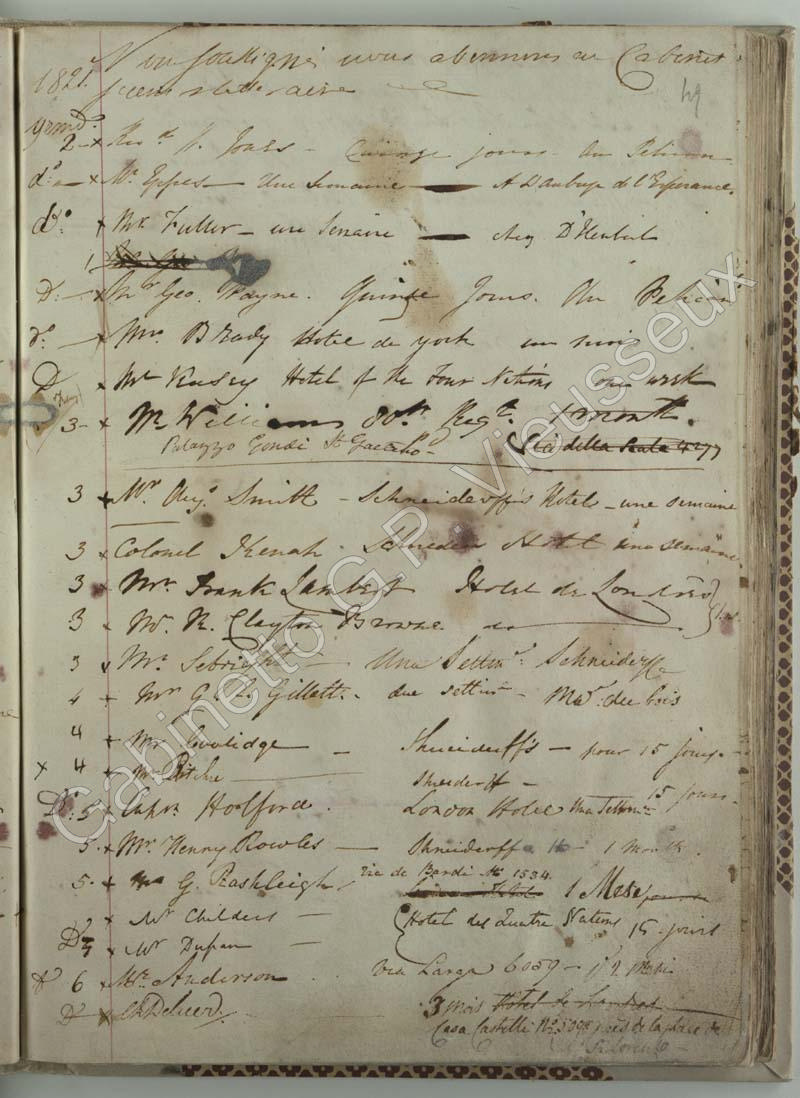 1821. Nous soussignés nous abonnons au Cabinet
litteraire
49
2 x Revd. J. Jones – Quinze jours – Au Pelican
do. x Mr. Eppes – Une Semaine – A L'auberge de l'Esperance.
do. x Mr. Fuller – une Semaine – chez
D. x Mr. Geo. Wayne. Quinze Jours. Au Pelican
do. x Mrs. Brady Hotel de york un mois
D x Mr Hotel of the Four Nations one week
3 x Mr Williams 80th. Regt. 1 month.
Palazzo Gondi Via della Scala 4277
3 x Mr. Augs. Smith – Schneiderff's Hotel – une semaine
3 x Colonel Kenah. Schneider Hotel una semaine
3 x Mr. Frank Lambert Hotel de Londres
3 x Mr. R. Clayton Browne do
3 x Mr. Sebright – Una Settima. Schneiderffe
4 x Mr G. Gillett. due settim –
4 x Mr Coolidge – Shneiderff's – pour 15 jours
x 4 x Mr Ritchie Shneiderff – 15 jours.
Do: 5 x Capn. Holford. London Hotel Una Settima
5. x Mr. Henry Rowles – Shneiderff 1 Month.
5. x Mr G. Rashleigh, Via de Bardi No. 1534. 1 Mese
x Mr Childers – Hotel des Quatre Nations 15 jours
D x Mr Dupan –
D 6 x Mr. Anderson. via Larga 6059 –
D x 3 mois Hotel de Londres
Casa Castelli No. 5098 près de la place de
St. Lorenzo –
Gabinetto G.P. Vieusseux